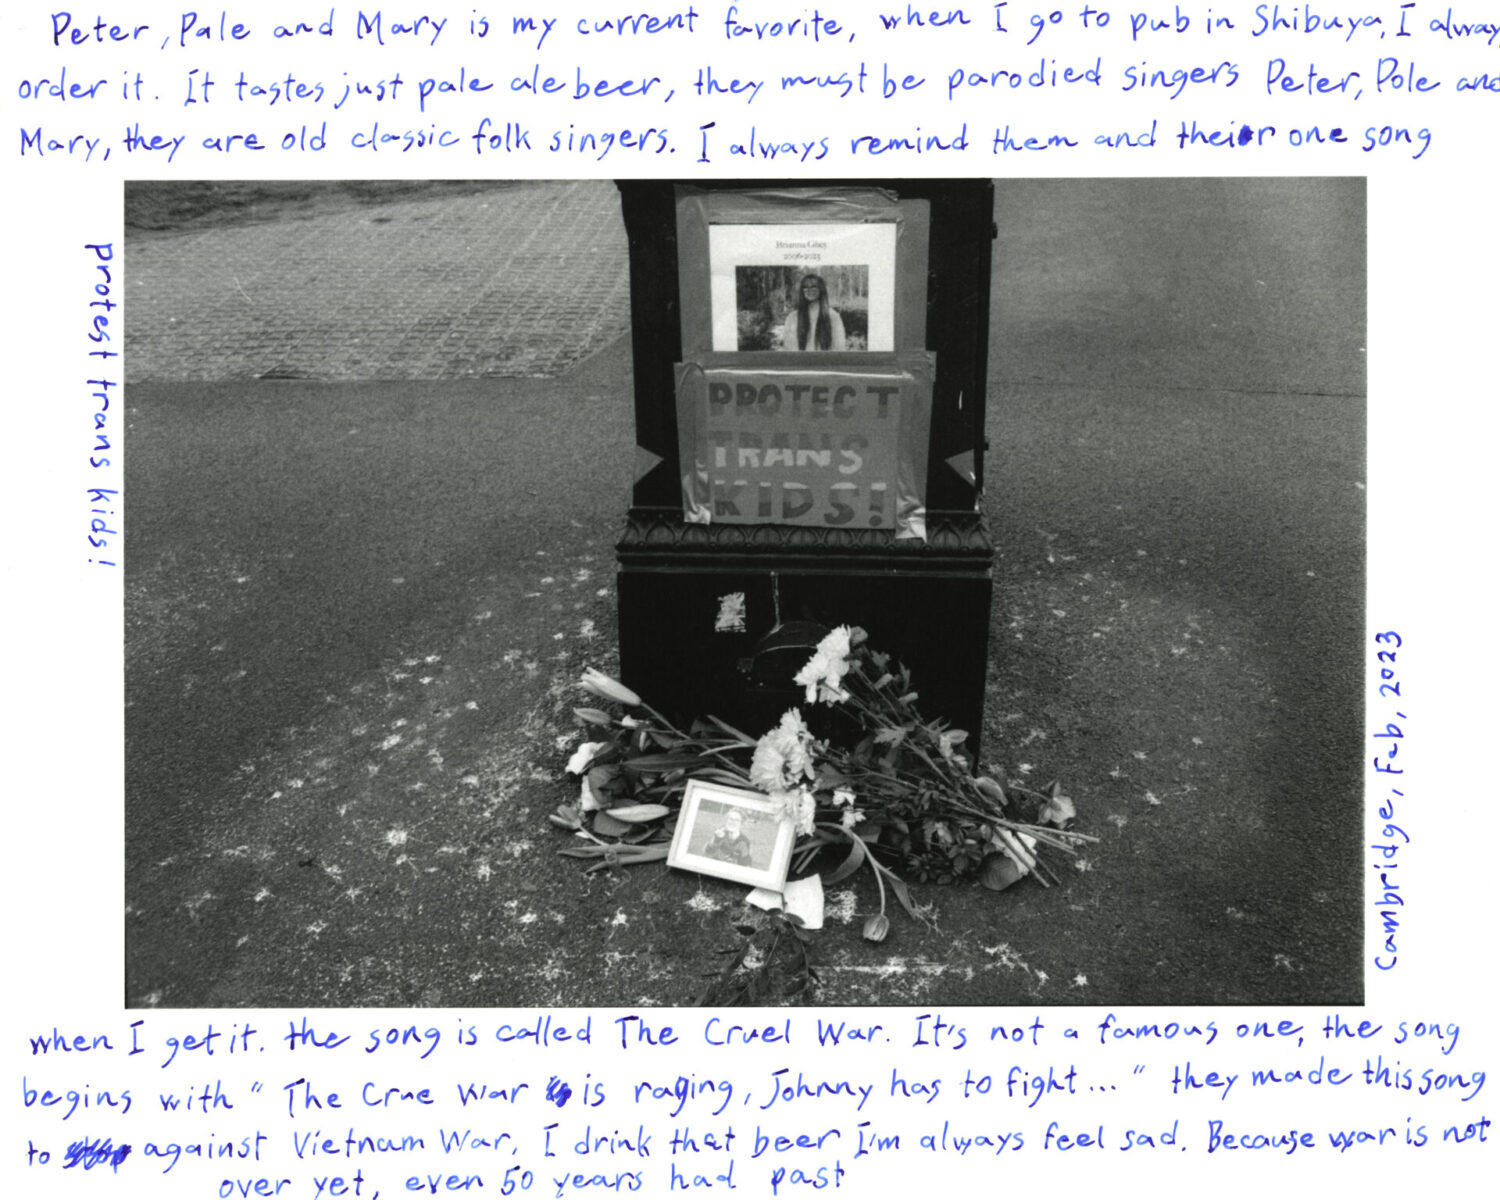 Peter, Pale and Mary is my current favorite, when I go to pub in Shibuya, I alway
order it. It tastes just pale ale beer, they must be parodied singers Peter, Pole and
Mary, they are old classic folk singers. I always remind them and their one song
protest trans kids!
Brianna Ghey
2006-2023
PROTECT
TRANS
KIDS!
Cambridge, Feb, 2023
when I get it. the song is called The Cruel War. It's not a famous one, the song
begins with " The Crue War is raging, Johnny has to fight... " they made this song
to against Vietnam War, I drink that beer I'm always feel sad. Because war is not
over yet, even 50 years had past